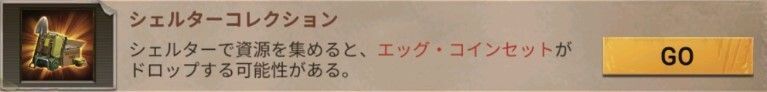 シェルターコレクション
シェルターで資源を集めると、エッグ・コインセットが
ドロップする可能性がある。
GO